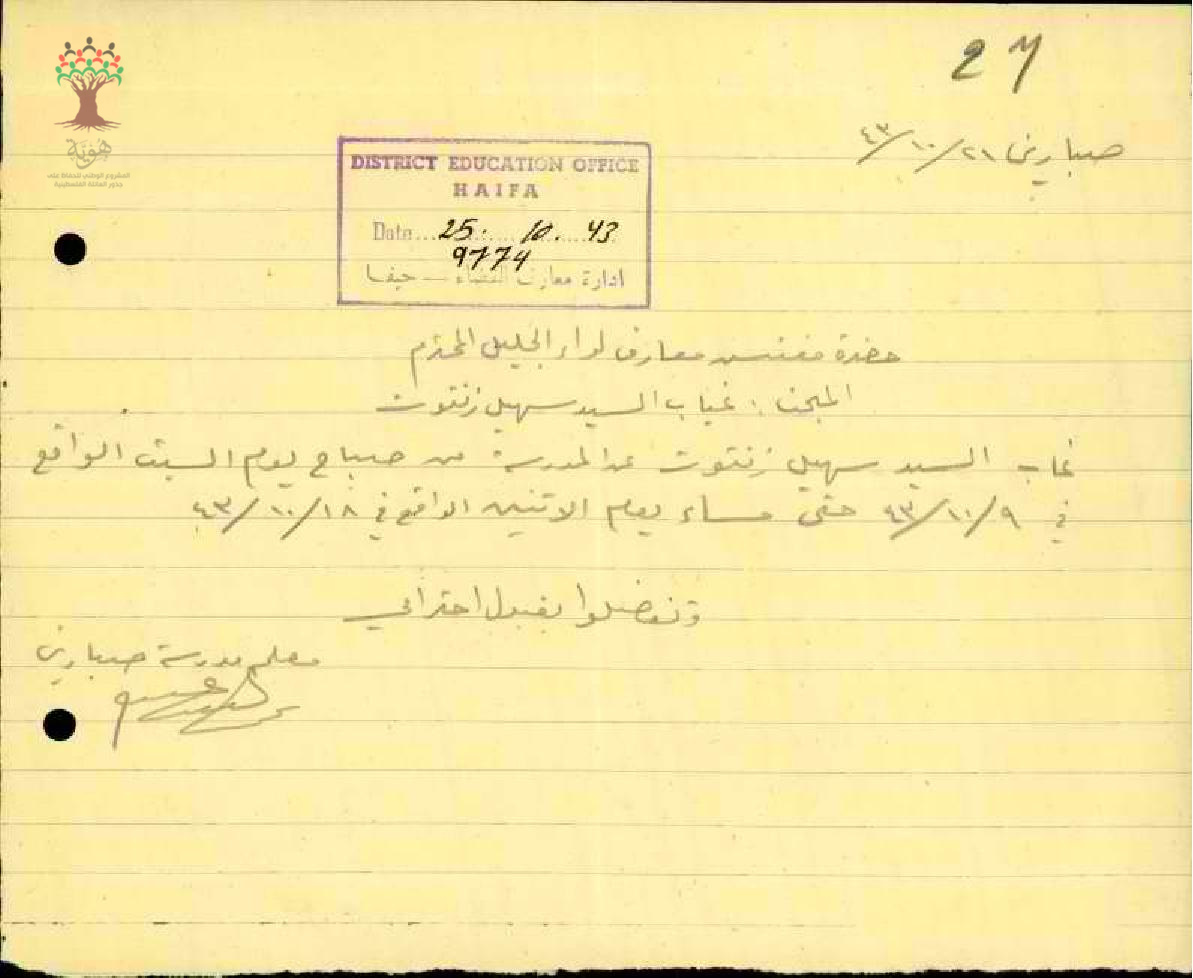 27
صبارين ٢١/١٠/٤٣
هوية
المشروع الوطني للحفاظ على
جذور العائلة الفلسطينية
DISTRICT EDUCATION OFFICE
HAIFA
Date... 25. 10. 43
9774
ادارة معارف القضاء — حيفا
حضرة مفتش معارف لواء الجليل المحترم
المبحث : غياب السيد سهيل زنتوت
غاب السيد سهيل زنتوت عن المدرسة من صباح يوم السبت الواقع
في ٩/١٠/٤٣ حتى مساء يوم الاثنين الواقع في ١٨/١٠/٤٣
وتفضلوا بقبول احترامي
معلم مدرسة صبارين